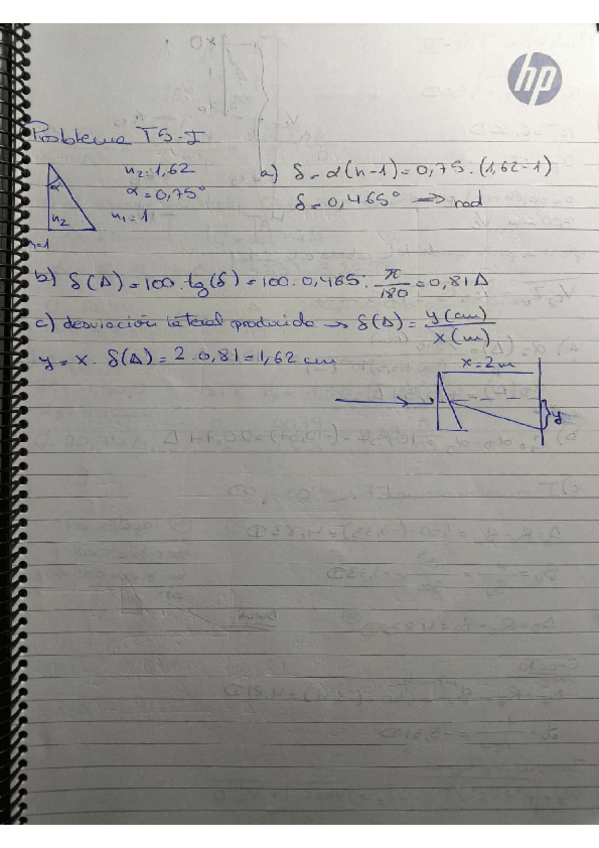 hp
Problema T5-I
n₂=1,62
α=0,75°
n₁=1
α
n₂
n=1
a) δ = α(n-1) = 0,75 · (1,62-1)
δ = 0,465° → rad
b) δ(Δ) = 100 · tg(δ) = 100 · 0,465 · π/180 = 0,81Δ
c) desviación lateral producida → δ(Δ) = y(cm)/x(m)
y = x · δ(Δ) = 2 · 0,81 = 1,62 cm
x=2m
y